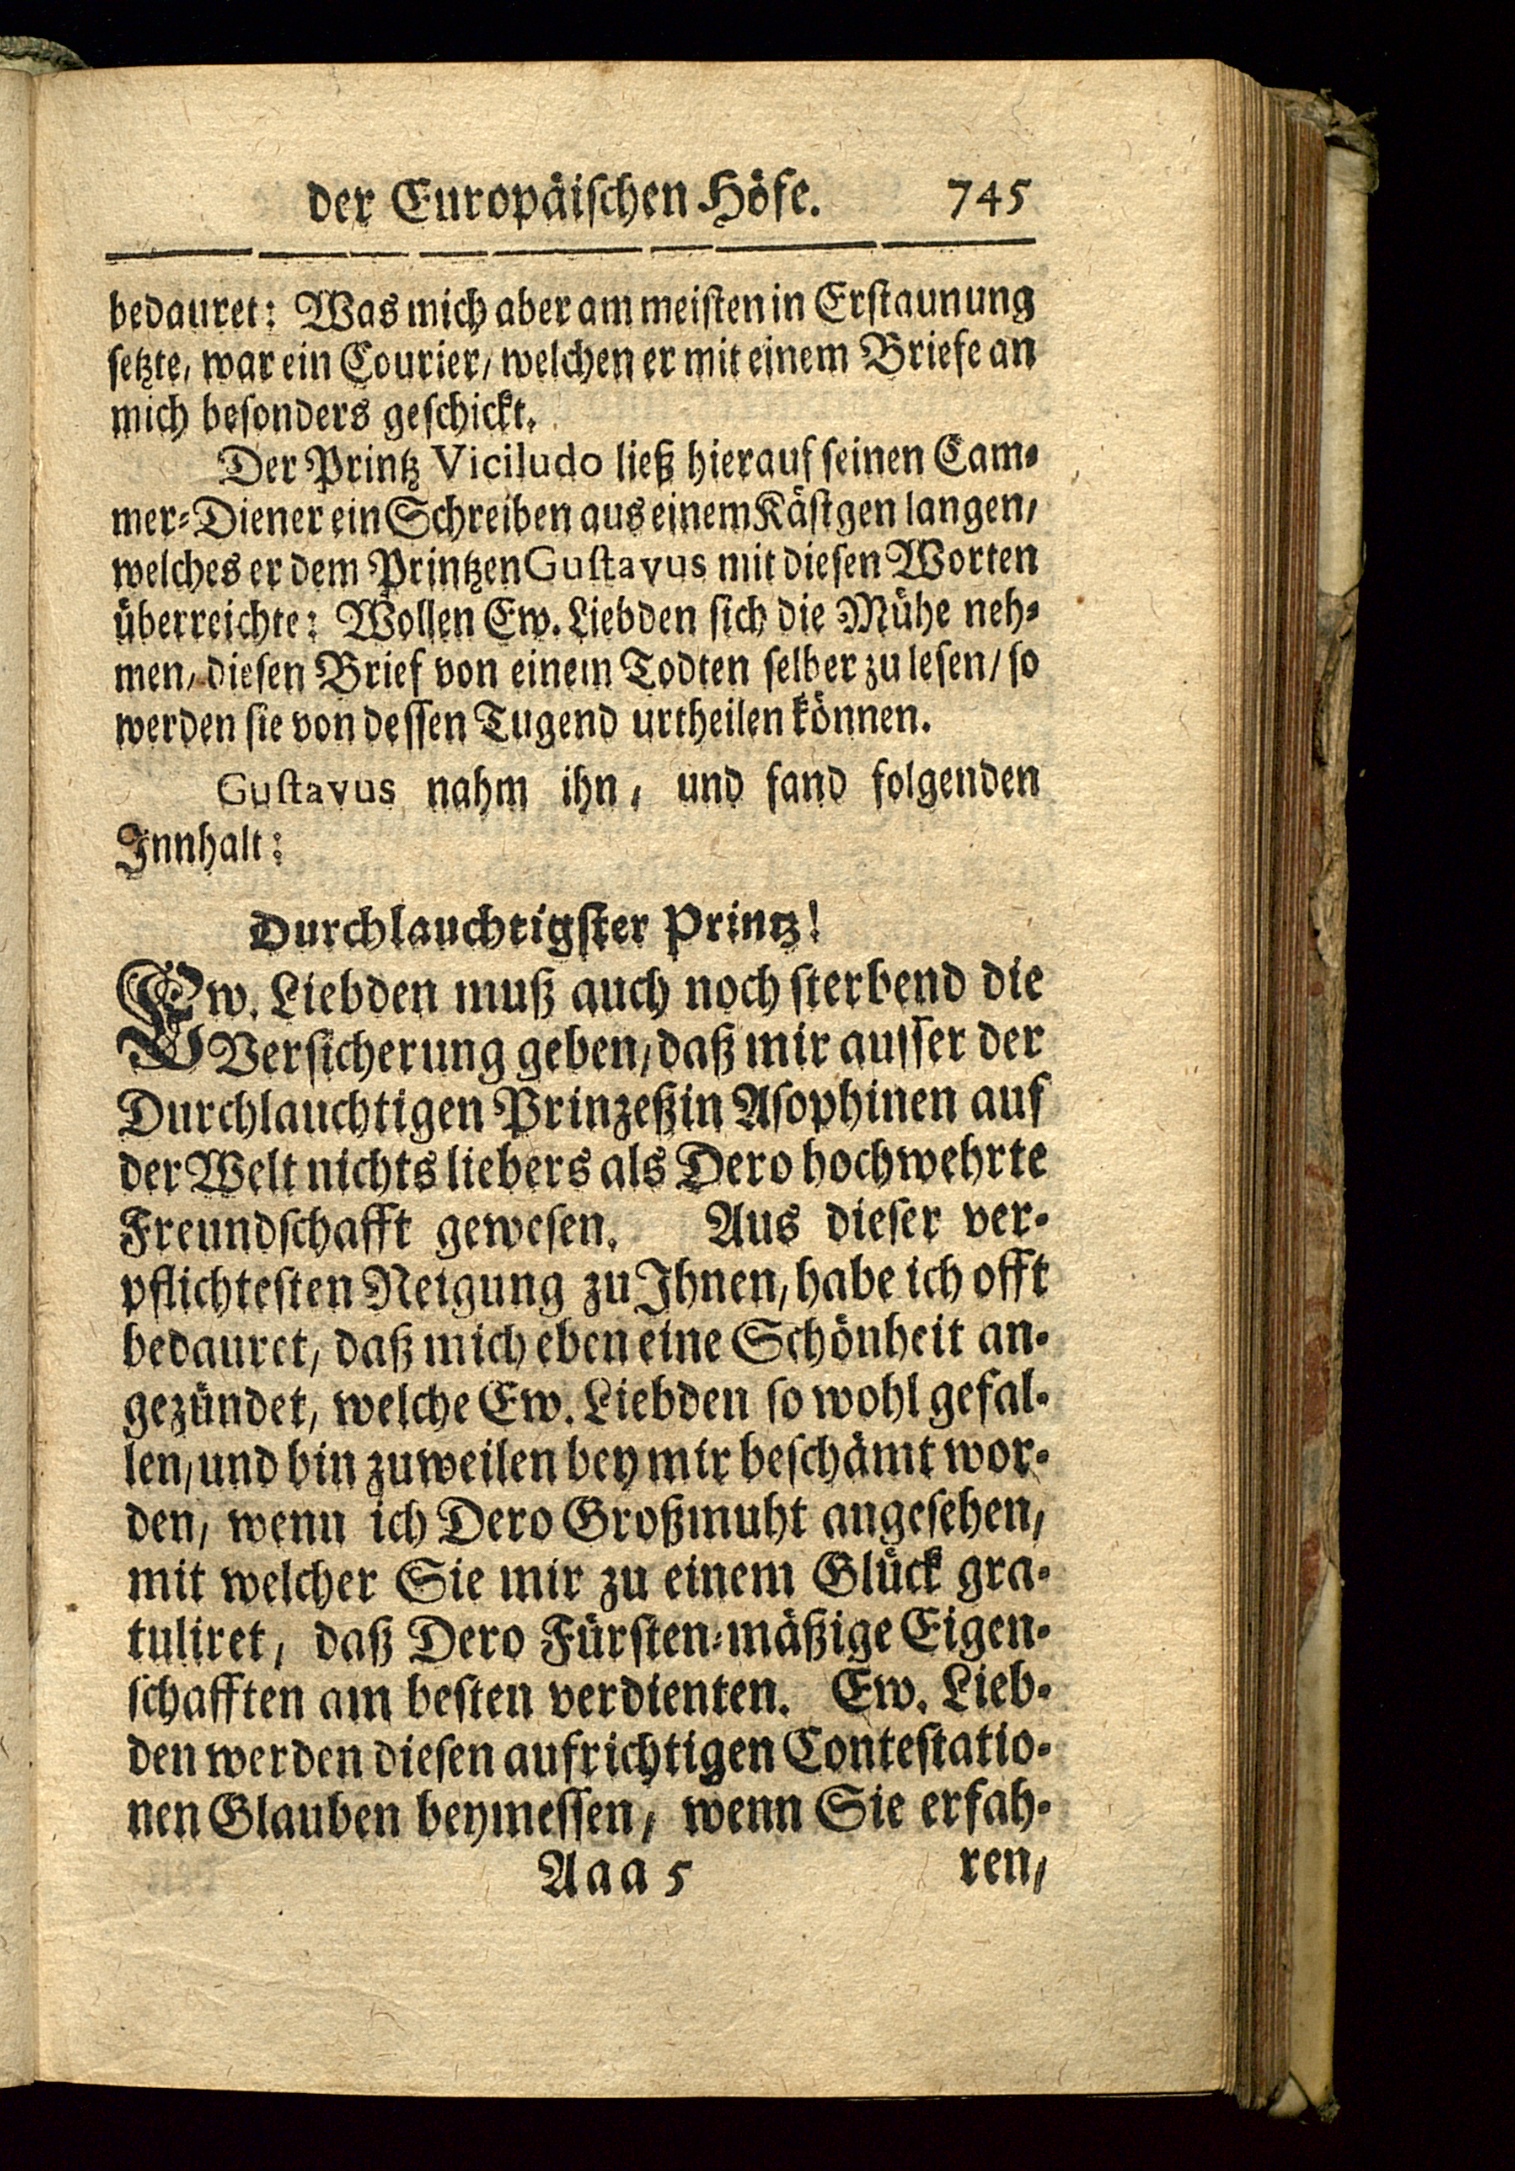 der Europäischen Höfe. 745
bedauret: Was mich aber am meisten in Erstaunung
setzte, war ein Courier, welchen er mit einem Briefe an
mich besonders geschickt.
Der Printz Viciludo ließ hierauf seinen Cam-
mer-Diener ein Schreiben aus einem Kästgen langen/
welches er dem Printzen Gustavus mit diesen Worten
überreichte: Wollen Ew. Liebden sich die Mühe neh-
men, diesen Brief von einem Todten selber zu lesen/ so
werden sie von dessen Tugend urtheilen können.
Gustavus nahm ihn, und fand folgenden
Innhalt:
Durchlauchtigster Printz!
Ew. Liebden muß auch noch sterbend die
Versicherung geben, daß mir ausser der
Durchlauchtigen Prinzeßin Asophinen auf
der Welt nichts liebers als Dero hochwehrte
Freundschafft gewesen. Aus dieser ver-
pflichtesten Neigung zu Ihnen, habe ich offt
bedauret, daß mich eben eine Schönheit an-
gezündet, welche Ew. Liebden so wohl gefal-
len, und bin zuweilen bey mir beschämt wor-
den, wenn ich Dero Großmuht angesehen,
mit welcher Sie mir zu einem Glück gra-
tuliret, daß Dero Fürsten-mäßige Eigen-
schafften am besten verdienten. Ew. Lieb-
den werden diesen aufrichtigen Contestatio-
nen Glauben beymessen, wenn Sie erfah-
Aaa 5 ren,